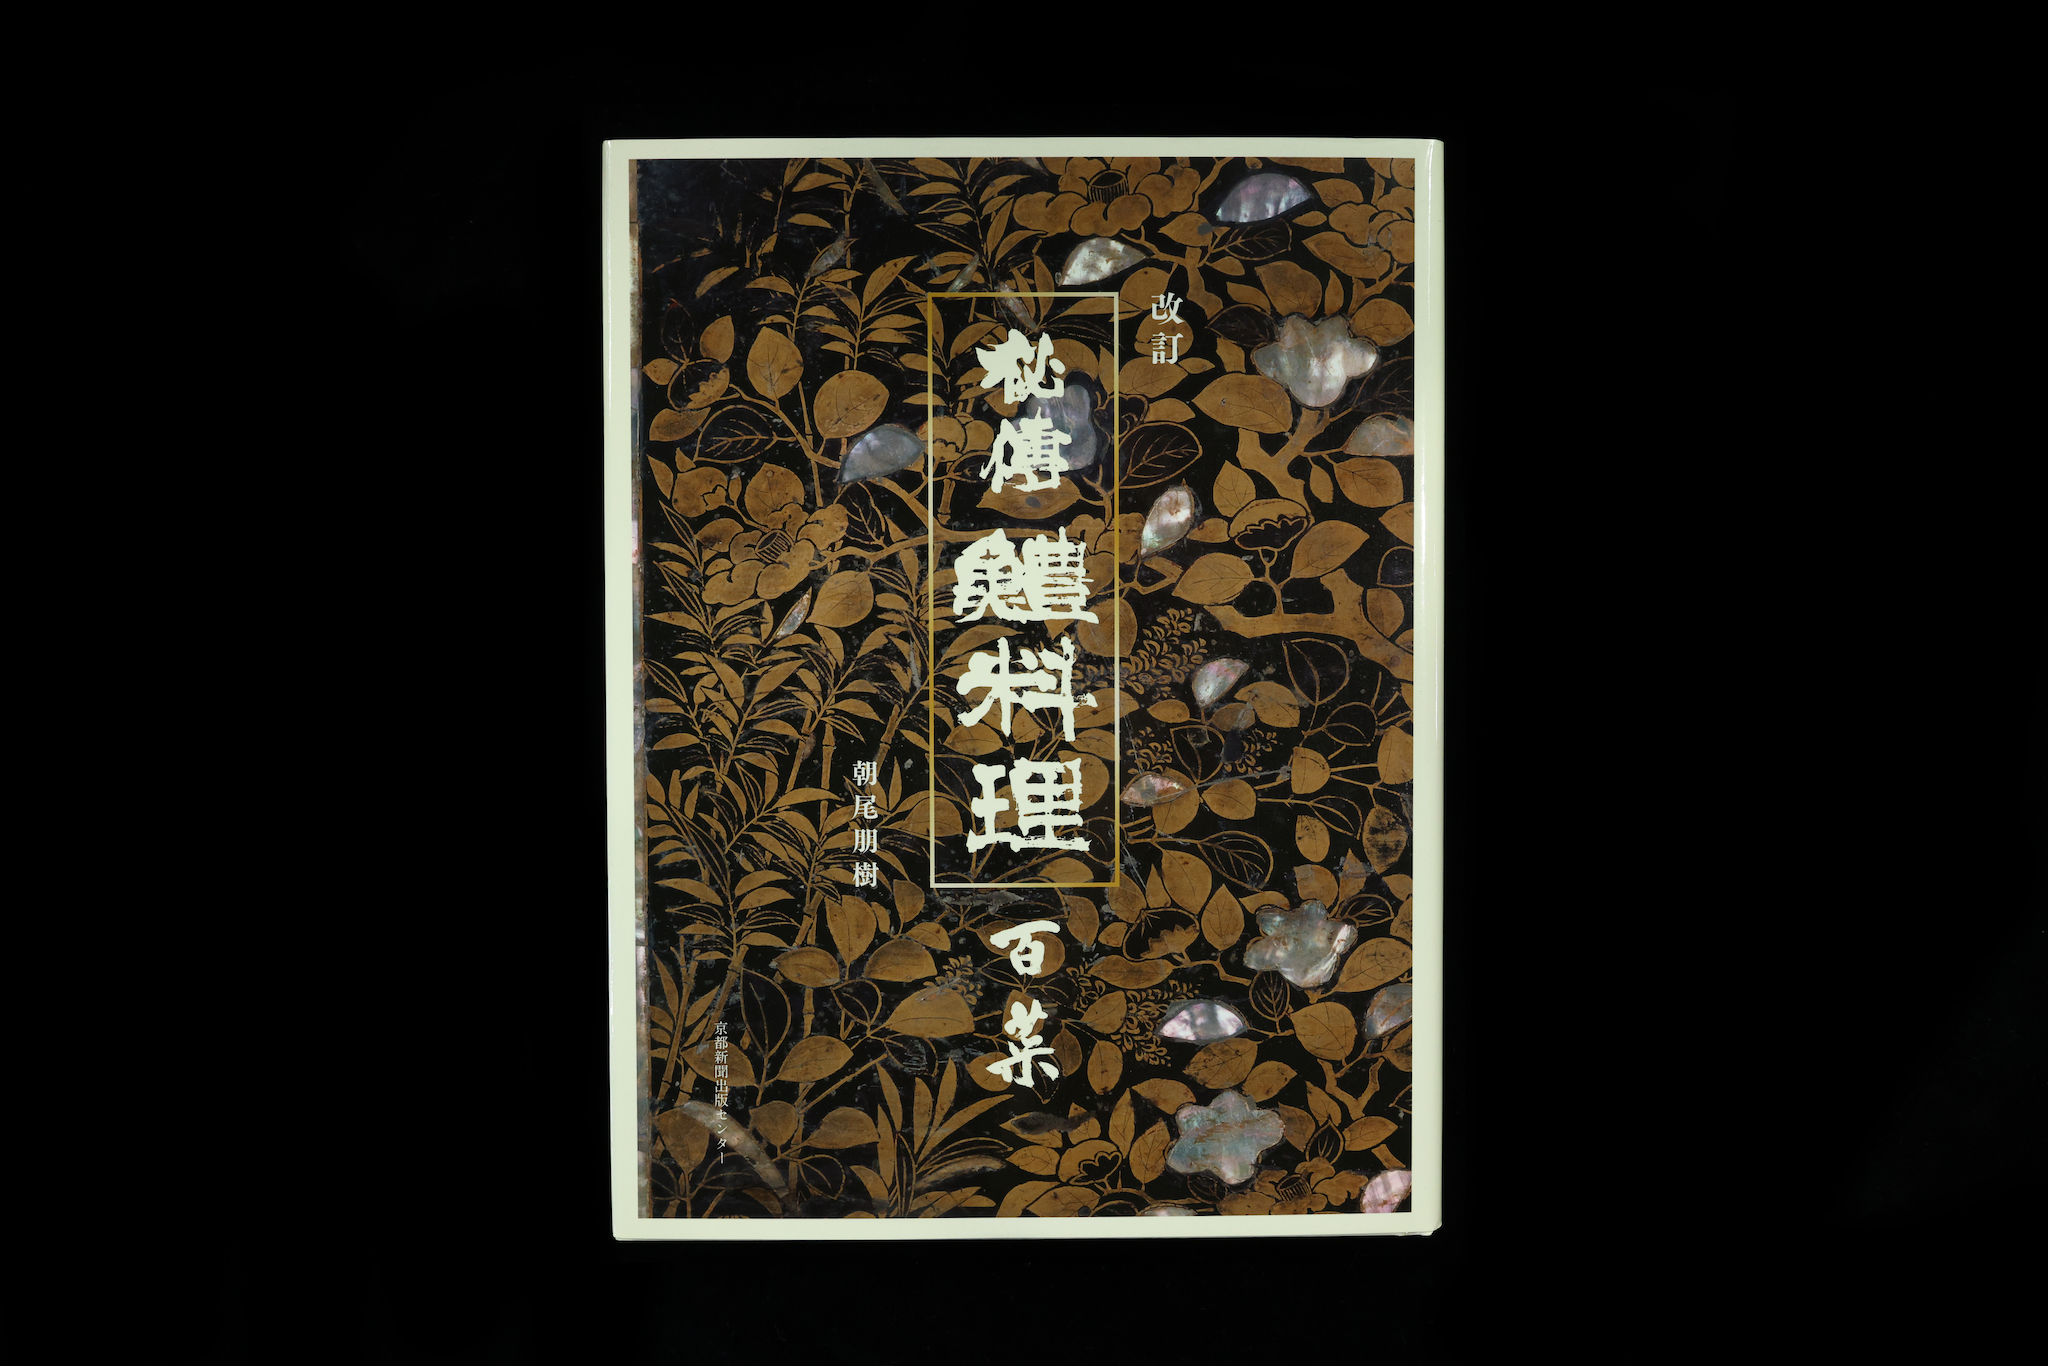 改訂
秘傳鱧料理
百菜
朝尾朋樹
京都新聞出版センター